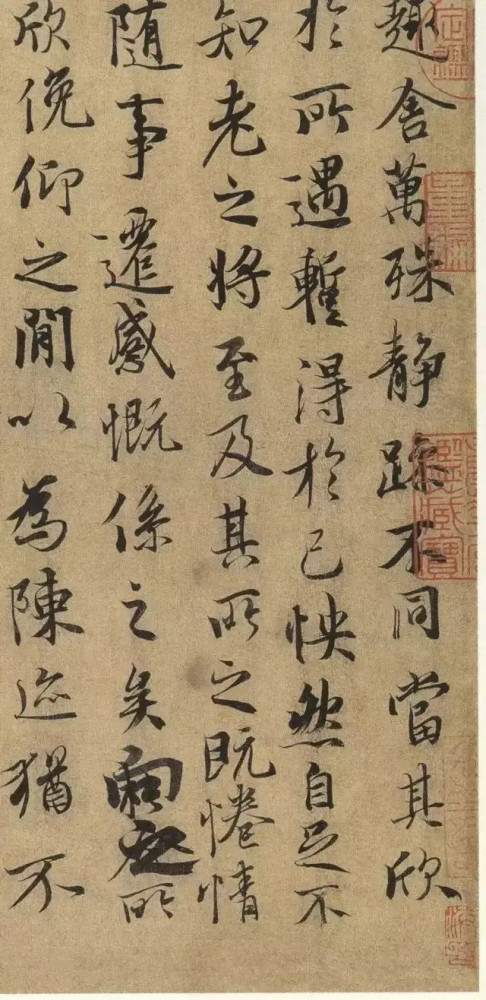 趣舍萬殊静躁不同當其欣
於所遇暫得於己怏然自足不
知老之將至及其所之既惓情
隨事遷感慨係之矣向之所
欣俛仰之閒以為陳迹猶不